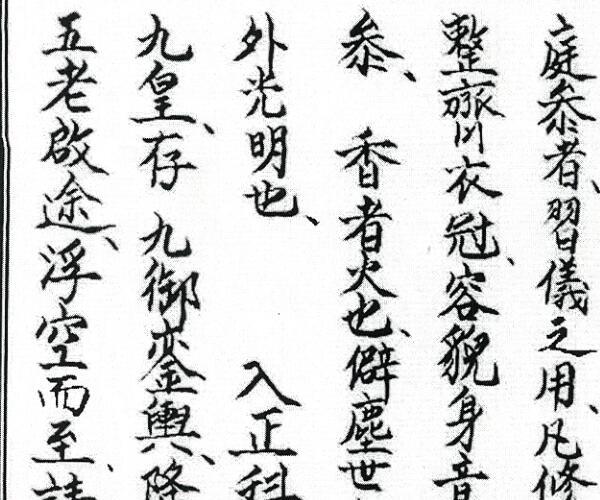 庭叅者、習儀之用、凡修
整齊衣冠、容貌身音
叅、 香者火也、僻塵世
外光明也、 入正科
九皇、存 九御鑾輿、降
五老啟途、浮空而至、請